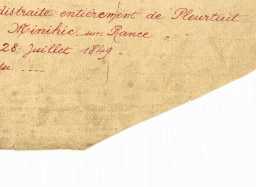 distraite entièrement de Pleurtuit
Minihic sur Rance
28 Juillet 1849